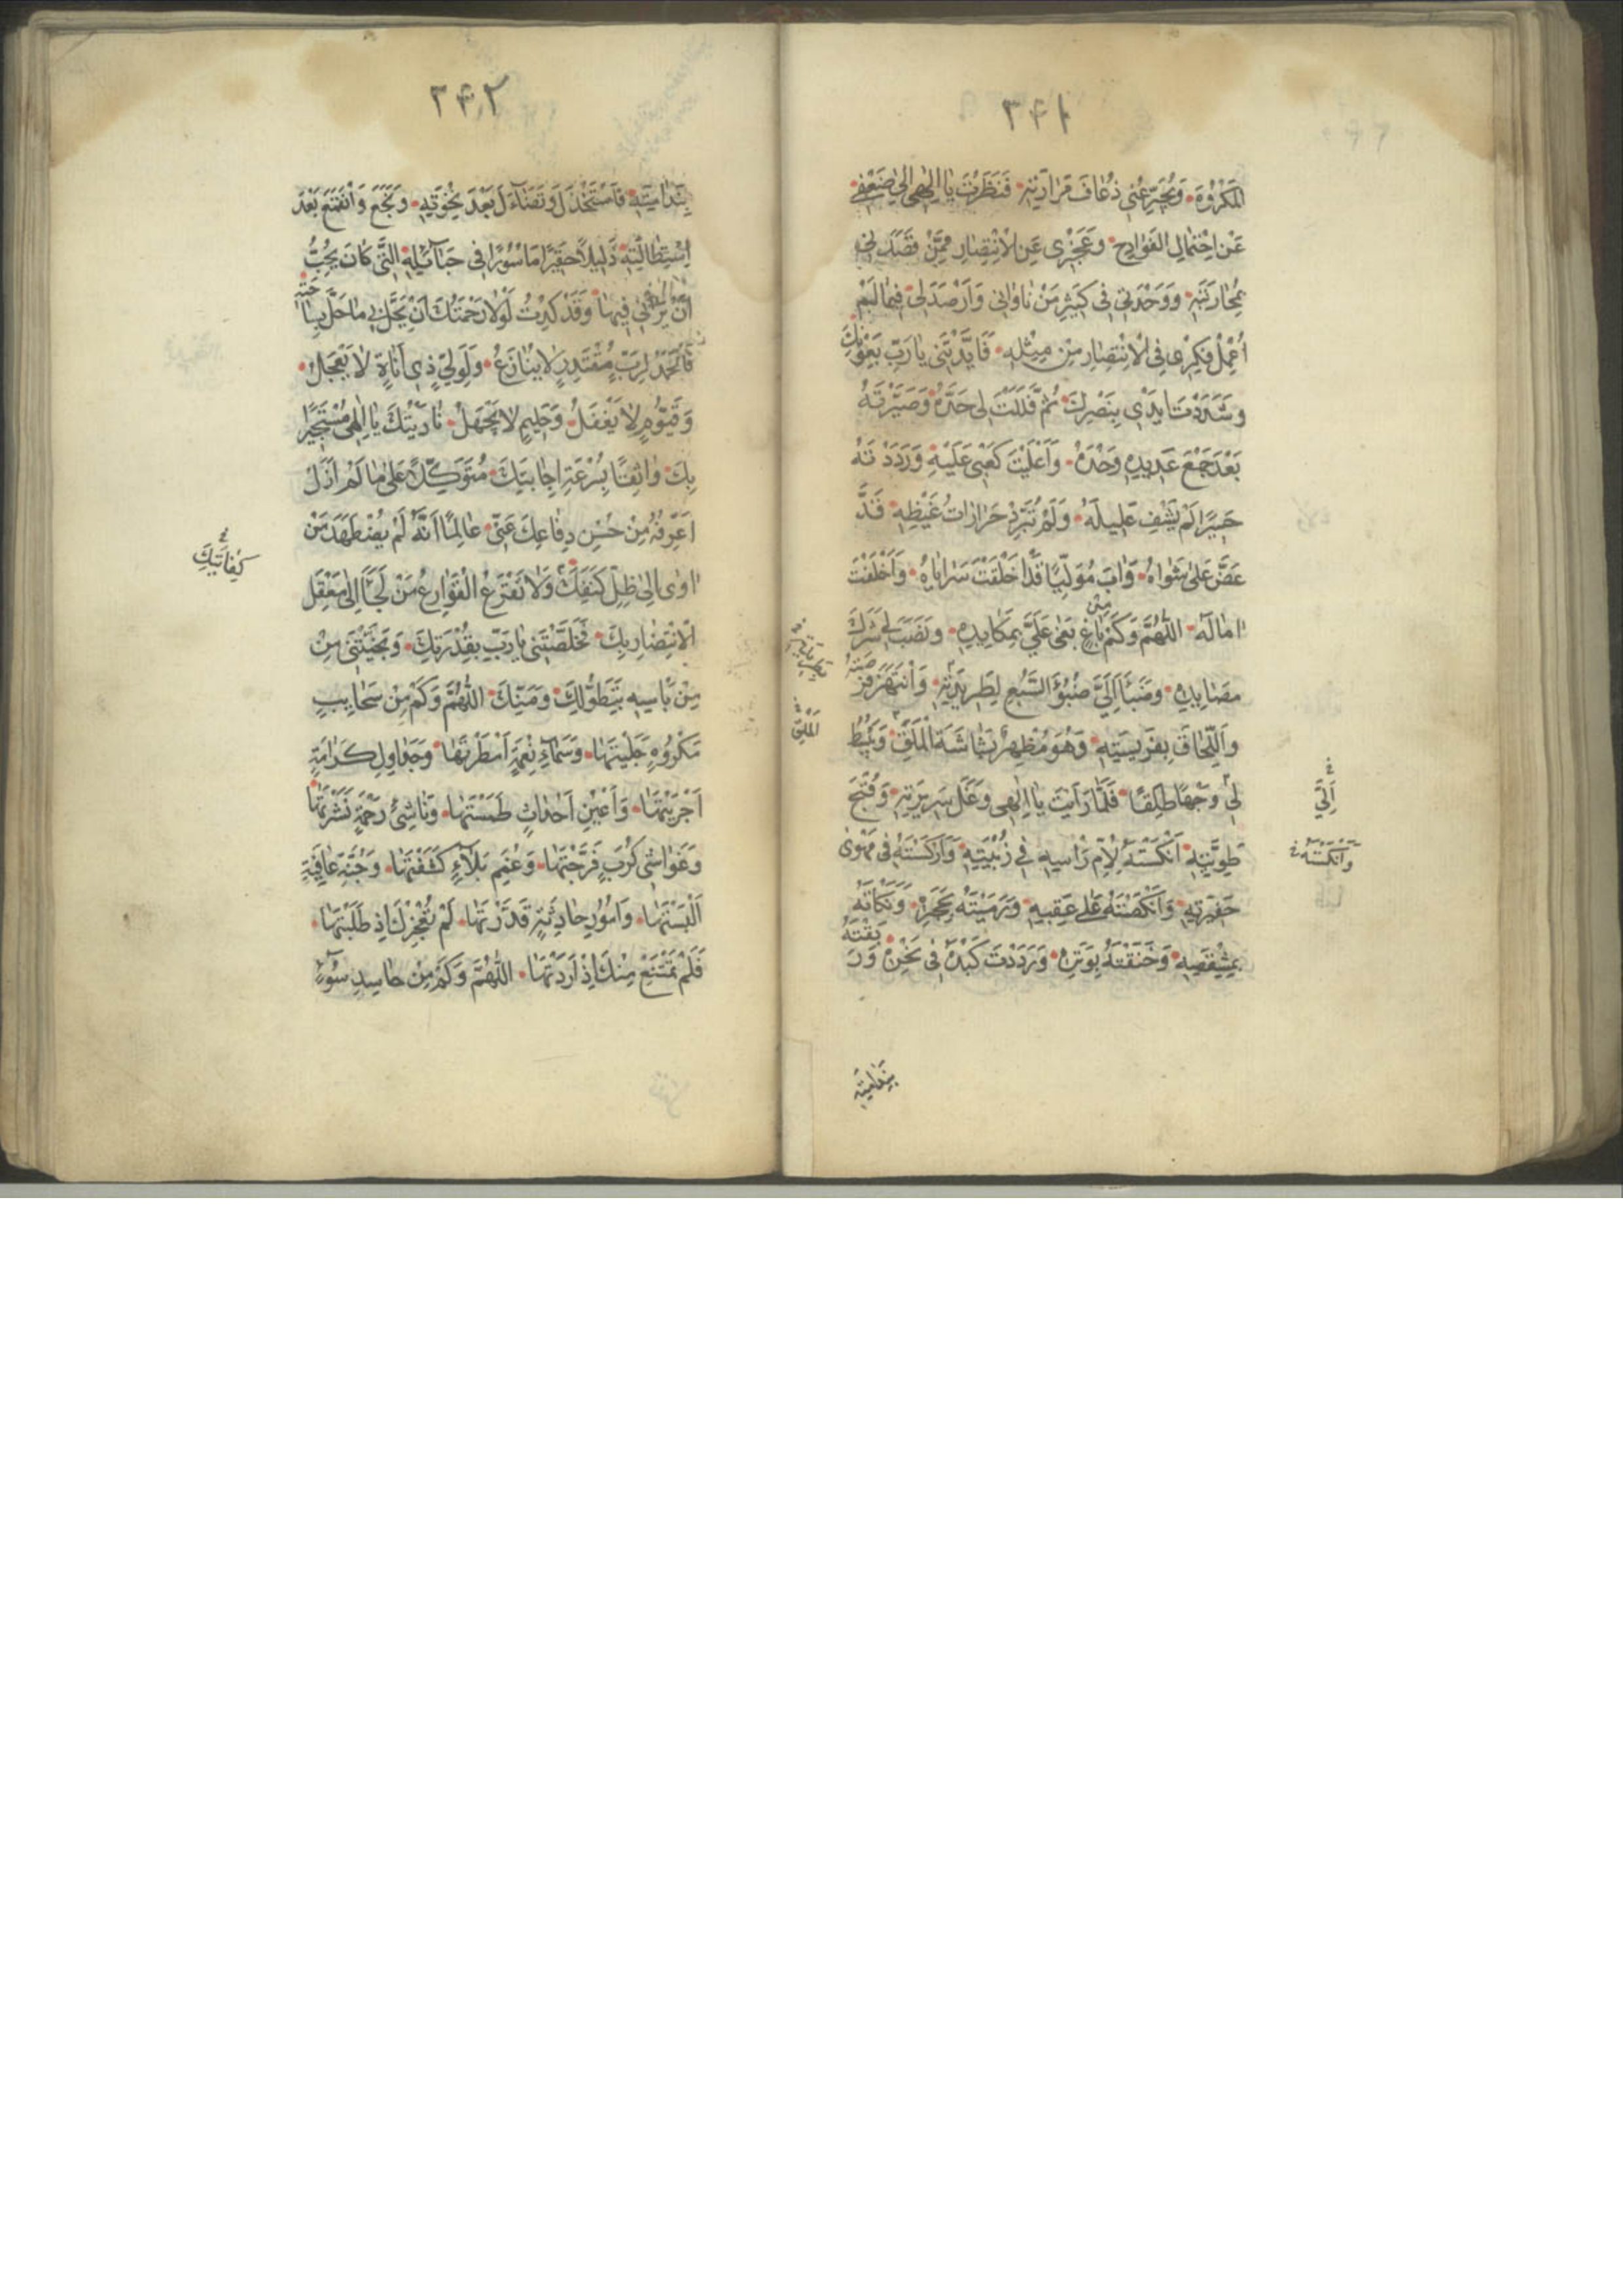 ٢٤١
المَكْرُوهَ وَيُجَرِّعُنِي ذُعَافَ مَرَارَتِهِ فَنَظَرْتَ يَا اِلٰهِي اِلىٰ ضَعْفِي
عَنْ اِحْتِمَالِ الفَوَادِحِ وَعَجْزِي عَنِ الْاِنْتِصَارِ مِمَّنْ قَصَدَنِي
بِمُحَارَبَتِهِ وَوَحْدَتِي فِي كَثِيرِ مَنْ نَاوَانِي وَاَرْصَدَ لِي فِيمَا لَمْ
اُعْمِلْ فِكْرِي فِي الْاِنْتِصَارِ مِنْ مِثْلِهِ فَاَيَّدْتَنِي يَا رَبِّ بِعَوْنِكَ
وَشَدَدْتَ اَيْدِي بِنَصْرِكَ ثُمَّ فَلَلْتَ لِي حَدَّهُ وَصَيَّرْتَهُ
بَعْدَ جَمْعِ عَدِيدِهِ وَحْدَهُ وَاَعْلَيْتَ كَعْبِي عَلَيْهِ وَرَدَدْتَهُ
حَسِيرًا لَمْ يَشْفِ غَلِيلَهُ وَلَمْ تُبَرِّدْ حَرَازَاتُ غَيْظِهِ قَدْ
عَضَّ عَلىٰ شَوَاهُ وَآبَ مُوَلِّيًا قَدْ اَخْلَفَتْ سَرَايَاهُ وَاَخْلَفَتْ
اٰمَالُهُ اَللّٰهُمَّ وَكَمْ مِنْ بَاغٍ بَغىٰ عَلَيَّ بِمَكَايِدِهِ وَنَصَبَ لِي شَرَكَ
مَصَايِدِهِ وَضَبَأَ اِلَيَّ ضُبُوءَ السَّبُعِ لِطَرِيدَتِهِ وَانْتَهَزَ فُرْصَتَهُ
وَاللِّحَاقَ بِفَرِيسَتِهِ وَهُوَ مُظْهِرٌ بَشَاشَةَ الْمَلَقِ وَيَبْسُطُ
لِي وَجْهًا طَلِقًا فَلَمَّا رَاَيْتَ يَا اِلٰهِي دَغَلَ سَرِيرَتِهِ وَقُبْحَ
طَوِيَّتِهِ اَنْكَسْتَهُ لِاُمِّ رَاْسِهِ فِي زُبْيَتِهِ وَاَرْكَسْتَهُ فِي مَهْوىٰ
حَفِيرَتِهِ وَاَنْكَصْتَهُ عَلىٰ عَقِبَيْهِ وَرَمَيْتَهُ بِحَجَرِهِ وَنَكَاْتَهُ
بِمِشْقَصِهِ وَخَنَقْتَهُ بِوَتَرِهِ وَرَدَدْتَ كَيْدَهُ فِي نَحْرِهِ وَرَبَقْتَهُ
بِنَدَامَتِهِ
اَلْمَلِقِ
اِلَيَّ
وَاَنْكَسْتَهُ
٢٤٢
بِنَدَامَتِهِ فَاسْتَخْذَلَ وَتَضَاءَلَ بَعْدَ نَخْوَتِهِ وَبَخَعَ وَانْقَمَعَ بَعْدَ
اِسْتِطَالَتِهِ ذَلِيلًا حَقِيرًا مَاْسُورًا فِي حَبَائِلِهِ الَّتِي كَانَ يُحِبُّ
اَنْ يَرَانِي فِيهَا وَقَدْ كِدْتُ لَوْلَا رَحْمَتُكَ اَنْ يَحُلَّ بِي مَا حَلَّ بِسَاحَتِهِ
فَالْحَمْدُ لِرَبٍّ مُقْتَدِرٍ لَا يُنَازَعُ وَلِوَلِيٍّ ذِي اَنَاةٍ لَا يَعْجَلُ
وَقَيُّومٍ لَا يَغْفَلُ وَحَلِيمٍ لَا يَجْهَلُ نَادَيْتُكَ يَا اِلٰهِي مُسْتَجِيرًا
بِكَ وَاثِقًا بِسُرْعَةِ اِجَابَتِكَ مُتَوَكِّلًا عَلىٰ مَا لَمْ اَزَلْ
اَعْرِفُهُ مِنْ حُسْنِ دِفَاعِكَ عَنِّي عَالِمًا اَنَّهُ لَمْ يُضْطَهَدْ مَنْ
اٰوىٰ اِلىٰ ظِلِّ كَنَفِكَ وَلَا تَقْرَعُ الْقَوَارِعُ مَنْ لَجَأَ اِلىٰ مَعْقِلِ
الْاِنْتِصَارِ بِكَ فَخَلَّصْتَنِي يَا رَبِّ بِقُدْرَتِكَ وَنَجَّيْتَنِي مِنْ
مِنْ بَاْسِهِ بِتَطَوُّلِكَ وَمَنِّكَ اَللّٰهُمَّ وَكَمْ مِنْ سَحَائِبِ
مَكْرُوهٍ جَلَّيْتَهَا وَسَمَاءِ نِعْمَةٍ اَمْطَرْتَهَا وَجَدَاوِلِ كَرَامَةٍ
اَجْرَيْتَهَا وَاَعْيُنِ اَحْدَاثٍ طَمَسْتَهَا وَنَاشِئِ رَحْمَةٍ نَشَرْتَهَا
وَغَوَاشِي كُرَبٍ فَرَّجْتَهَا وَغُمَمِ بَلَاءٍ كَشَفْتَهَا وَجُنَّةِ عَافِيَةٍ
اَلْبَسْتَهَا وَاُمُورٍ حَادِثَةٍ قَدَّرْتَهَا لَمْ تُعْجِزْكَ اِذْ طَلَبْتَهَا
فَلَمْ تَمْتَنِعْ مِنْكَ اِذْ اَرَدْتَهَا اَللّٰهُمَّ وَكَمْ مِنْ حَاسِدِ سُوءٍ
كِفَايَتِكَ